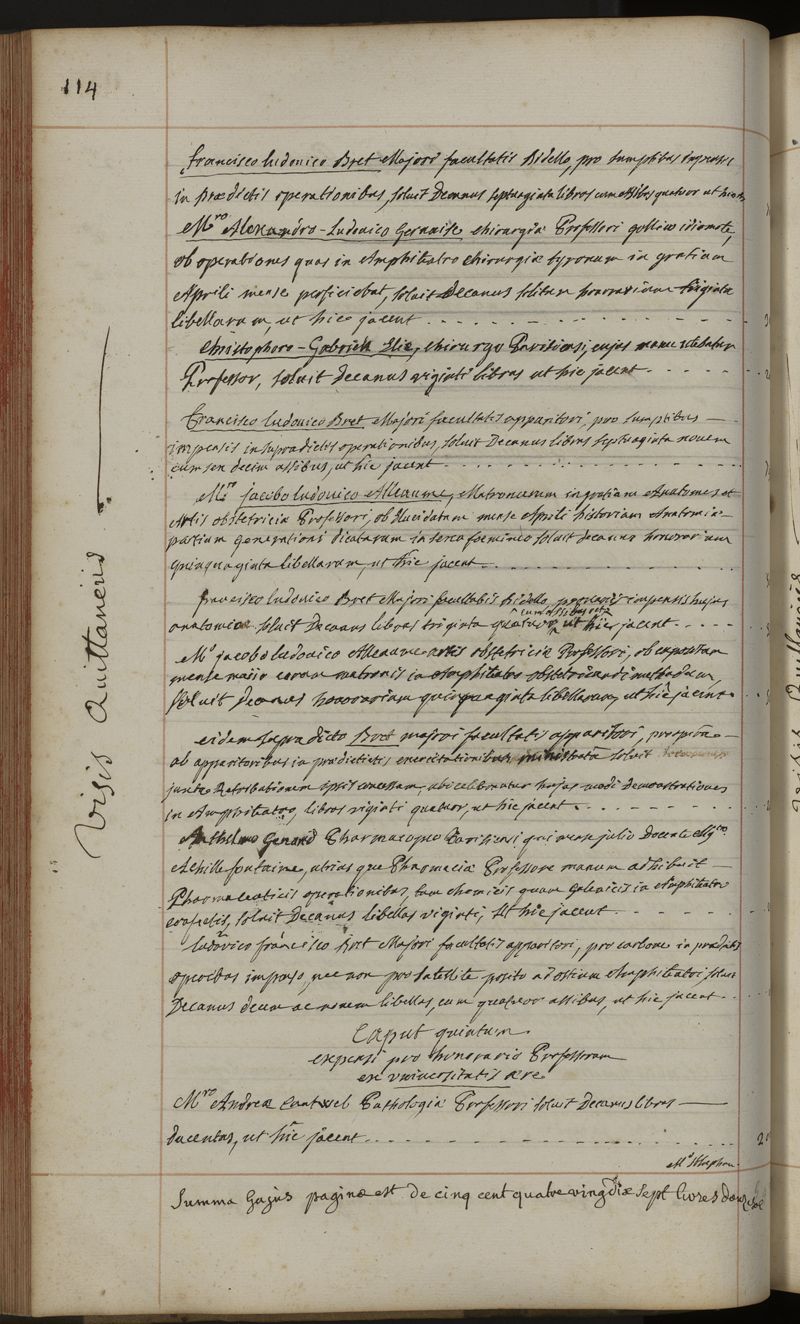 114
Visis Quittanciis
Francisco Ludovico Bret Majori facultatis Bidello, pro sumptibus impensis
in prædictis operationibus, soluit Decanus septuaginta libras cum assibus quatuor ut hic
Mro Alexandro-Ludovico Chirurgiæ Professori gallico idiomate,
ob operationes quas in Amphiteatro Chirurgiæ tyronum in gratiam
Aprili mense perficiebat, soluit Decanus solitum honorarium triginta
libellarum, ut hic jacent
Christophoro-Gabrieli Elie, chirurgo Parisiensi, cujus manu utebatur
Professor, soluit decanus viginti libras ut hic jacent
Francisco Ludovico Bret Majori facultatis apparitori, pro sumptibus
impensis in supradictis operationibus, soluit Decanus libras septuaginta novem
cum sex decim assibus, ut hic jacent
Mro jacobo Ludovico Alleaume, Matronarum in gratiam Anatomes et
Artis obstetriciæ Professori, ob elucidatam mense Aprili historiam Anatomiæ
partium generationi dicatarum in sexu foemineo soluit decanus honorarium
quinquaginta libellarum, ut hic jacent
Francisco Ludovico Bret Majori facultatis Bidello, impensis hujus
anatomiæ soluit Decanus libras triginta quatuor cum assibus ut hic jacent
Mo jacobo Ludovico Alleaume artis obstetriciæ Professori, ob expositam
mense maio coram matronis in Amphiteatro obstetricandi methodum,
soluit Decanus honorarium quinquaginta libellarum, ut hic jacent
eidem supradicto Bret majori facultatis apparitori,
ab apparitoribus in prædictis exercitationibus ministrata soluit
juxta retributionem ipsis concessam, ubi celebrantur hujus modi demonstrationes
in Amphiteatro, libras viginti quatuor, ut hic jacent
Anthelmo Genand Pharmacopeo Parisiensi qui mense julio Docente Mgro
Achille fontaine, utriusque Pharmaciæ Professore manum adhibuit
Pharmaceuticis operationibus, tum chemicis quam Galenicis in Amphiteatro
confectis, soluit Decanus libellas viginti, ut hic jacent
Ludovico francisco Bret Majori facultatis apparitori, pro carbone in prædictis
impenso, nec non pro satellite posito ad ostium Amphiteatri, soluit
Decanus decem ac novem libellas, cum quatuor assibus, ut hic jacent
Caput quintum
expensi pro honorario Professorum
ex universitatis ære
Mro Andreæ Cantwel Pathologiæ Professori soluit Decanus libras
ducentas, ut hic jacent
Summa hujus paginæ est de cinq cent quatre vingt dix sept livres